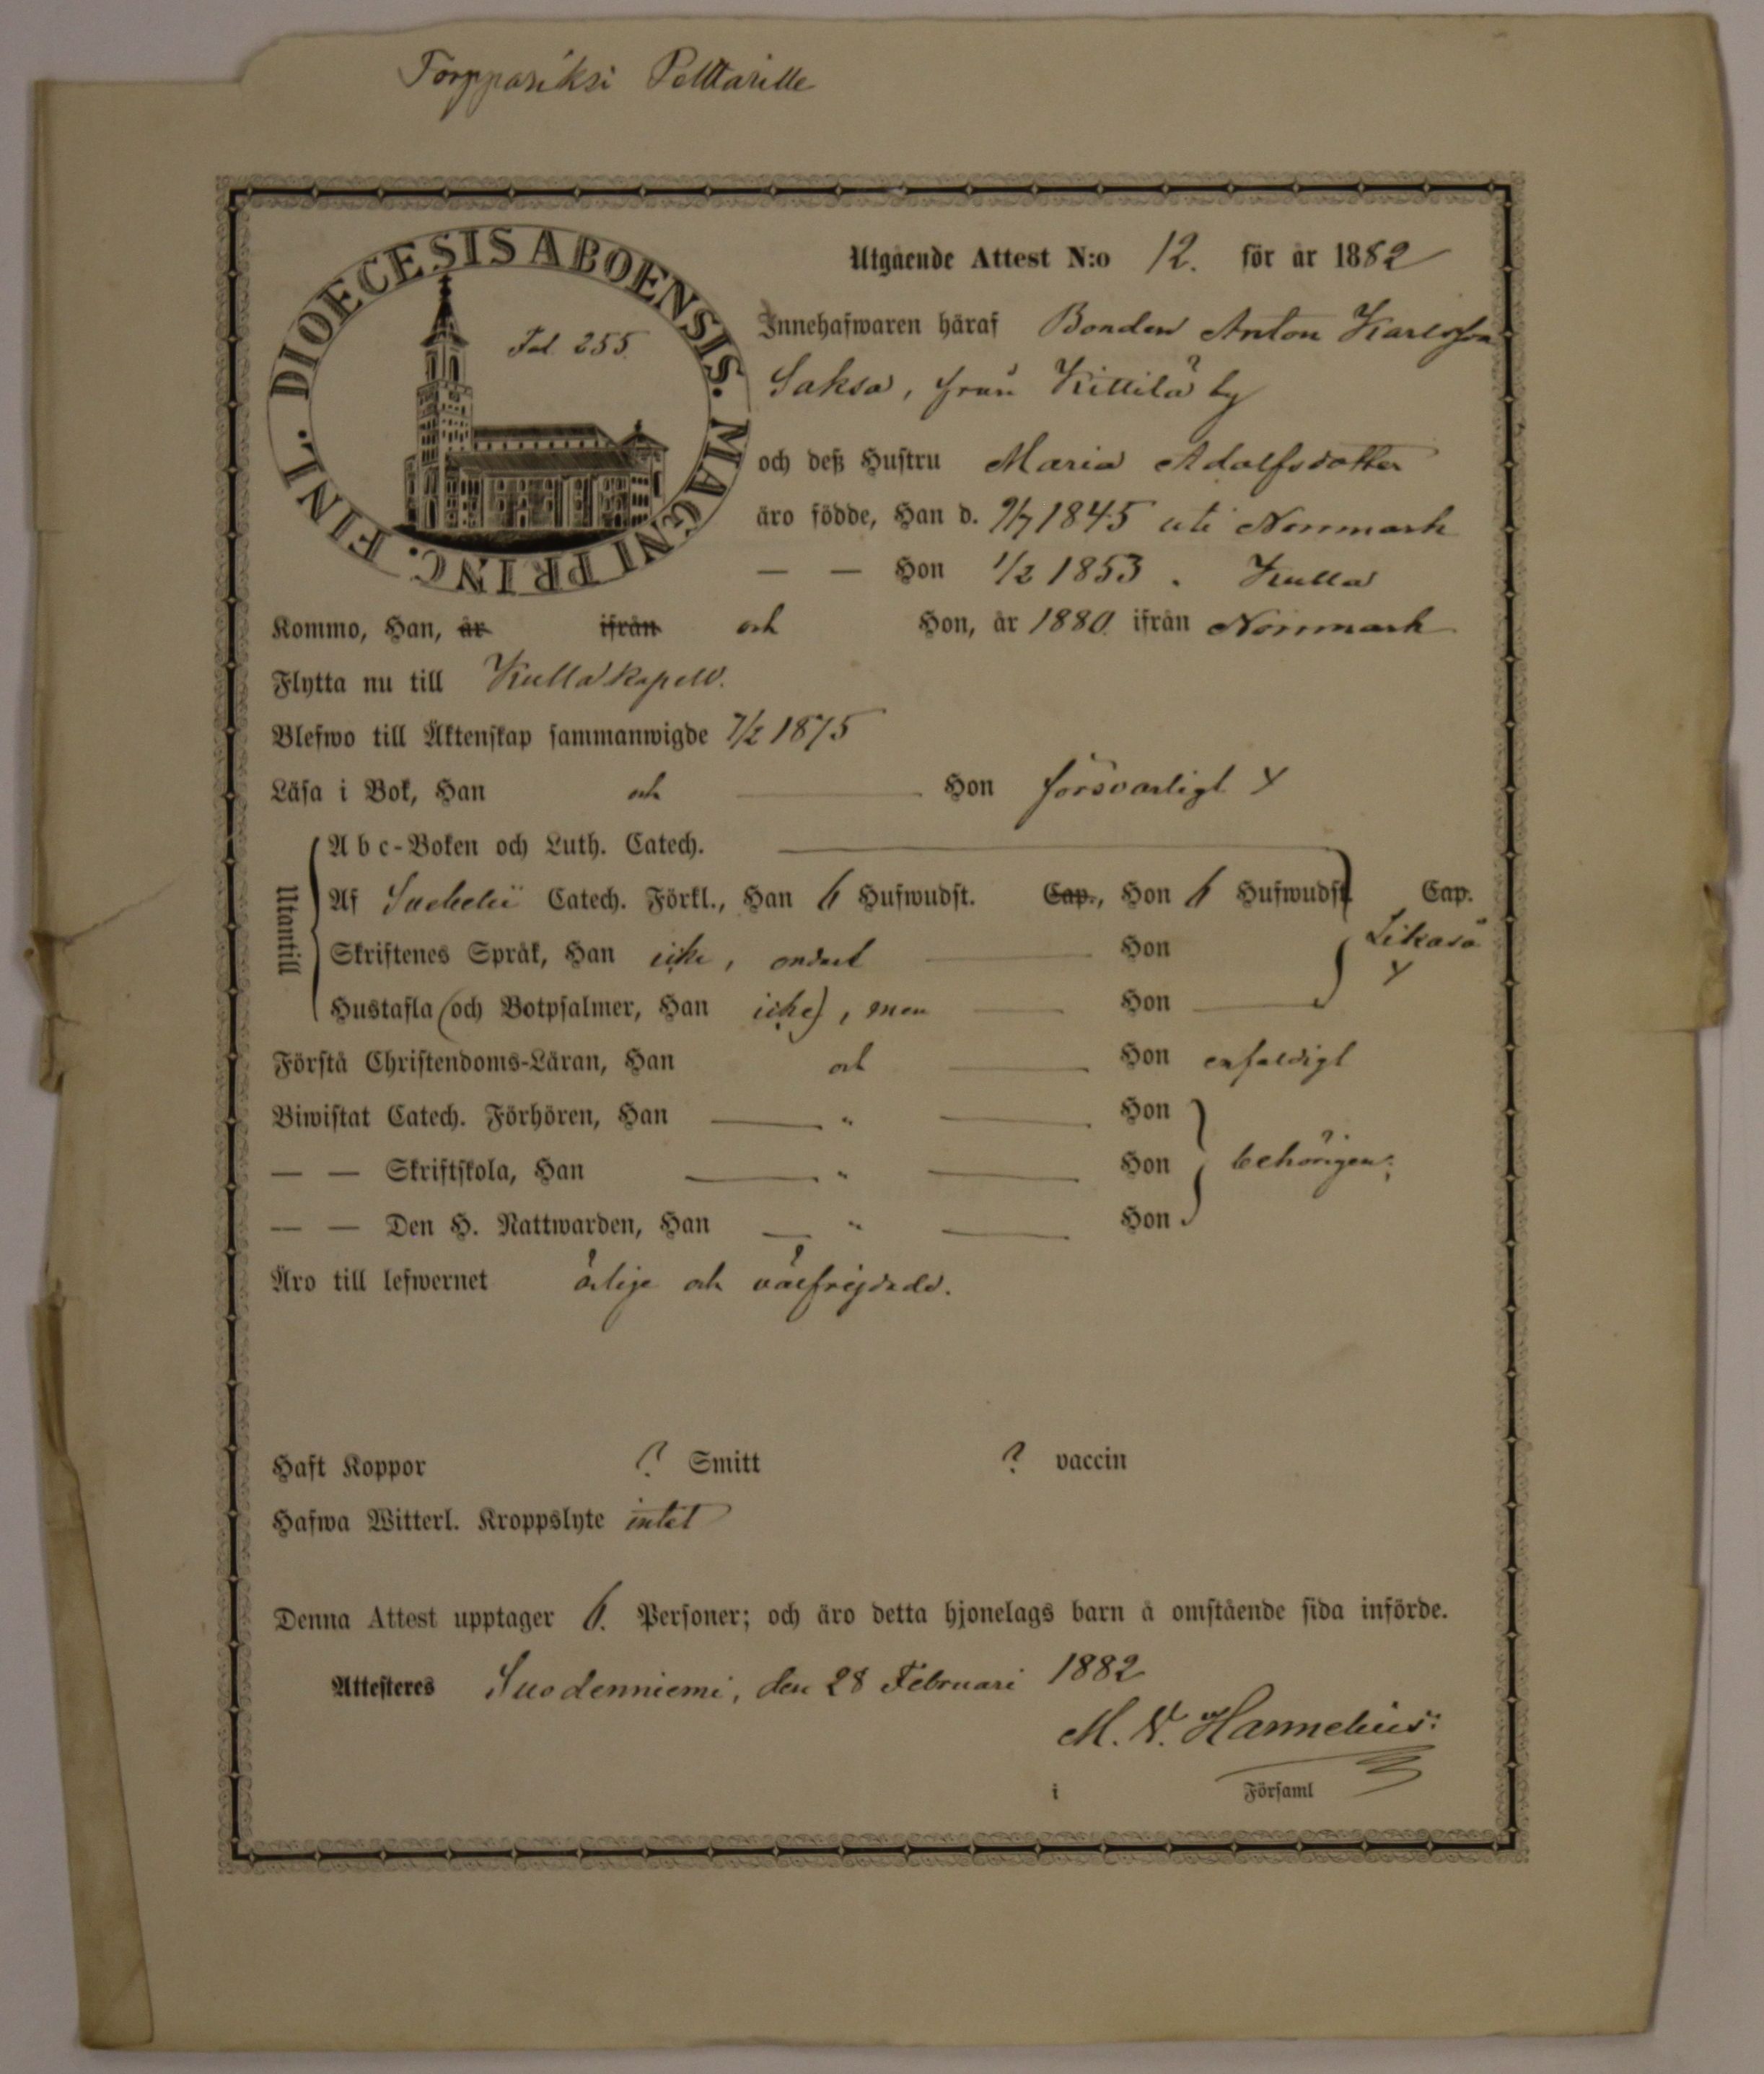 Torppariksi Pelttarille
DIOECESIS ABOENSIS. MAGNI PRINC. FINL.
Fol. 255.
Utgående Attest N:o 12. för år 1882
Innehafwaren häraf Bonden Anton Karlsson
Saksa, från Kittilä by
och deß Hustru Maria Adolfsdotter
äro födde, Han d. 9/7 1845 uti Norrmark
— — Hon 1/2 1853 . Kulla
Kommo, Han, år ifrån och Hon, år 1880. ifrån Norrmark
Flytta nu till Kulla kapell.
Blefwo till Äktenskap sammanwigde 7/2 1875
Läsa i Bok, Han och — Hon försvarligt
Utantill
A b c-Boken och Luth. Catech.
Af Suebelii Catech. Förkl., Han 6 Hufwudst. Cap., Hon 6 Hufwudst. Cap.
Likaså
Skriftenes Språk, Han icke, endast — Hon
Hustafla (och Botpsalmer, Han icke), men — Hon —
Förstå Christendoms-Läran, Han och — Hon enfaldigt
Biwistat Catech. Förhören, Han — " — Hon
— — Skriftskola, Han — " — Hon behörigen;
— — Den H. Nattwarden, Han — " — Hon
Äro till lefwernet ärlige och välfrejdade.
Haft Koppor ? Smitt ? vaccin
Hafwa Witterl. Kroppslyte intet
Denna Attest upptager 6. Personer; och äro detta hjonelags barn å omstående sida införde.
Attesteres Suodenniemi, den 28 Februari 1882
M. V. Hannelius:
i Församl